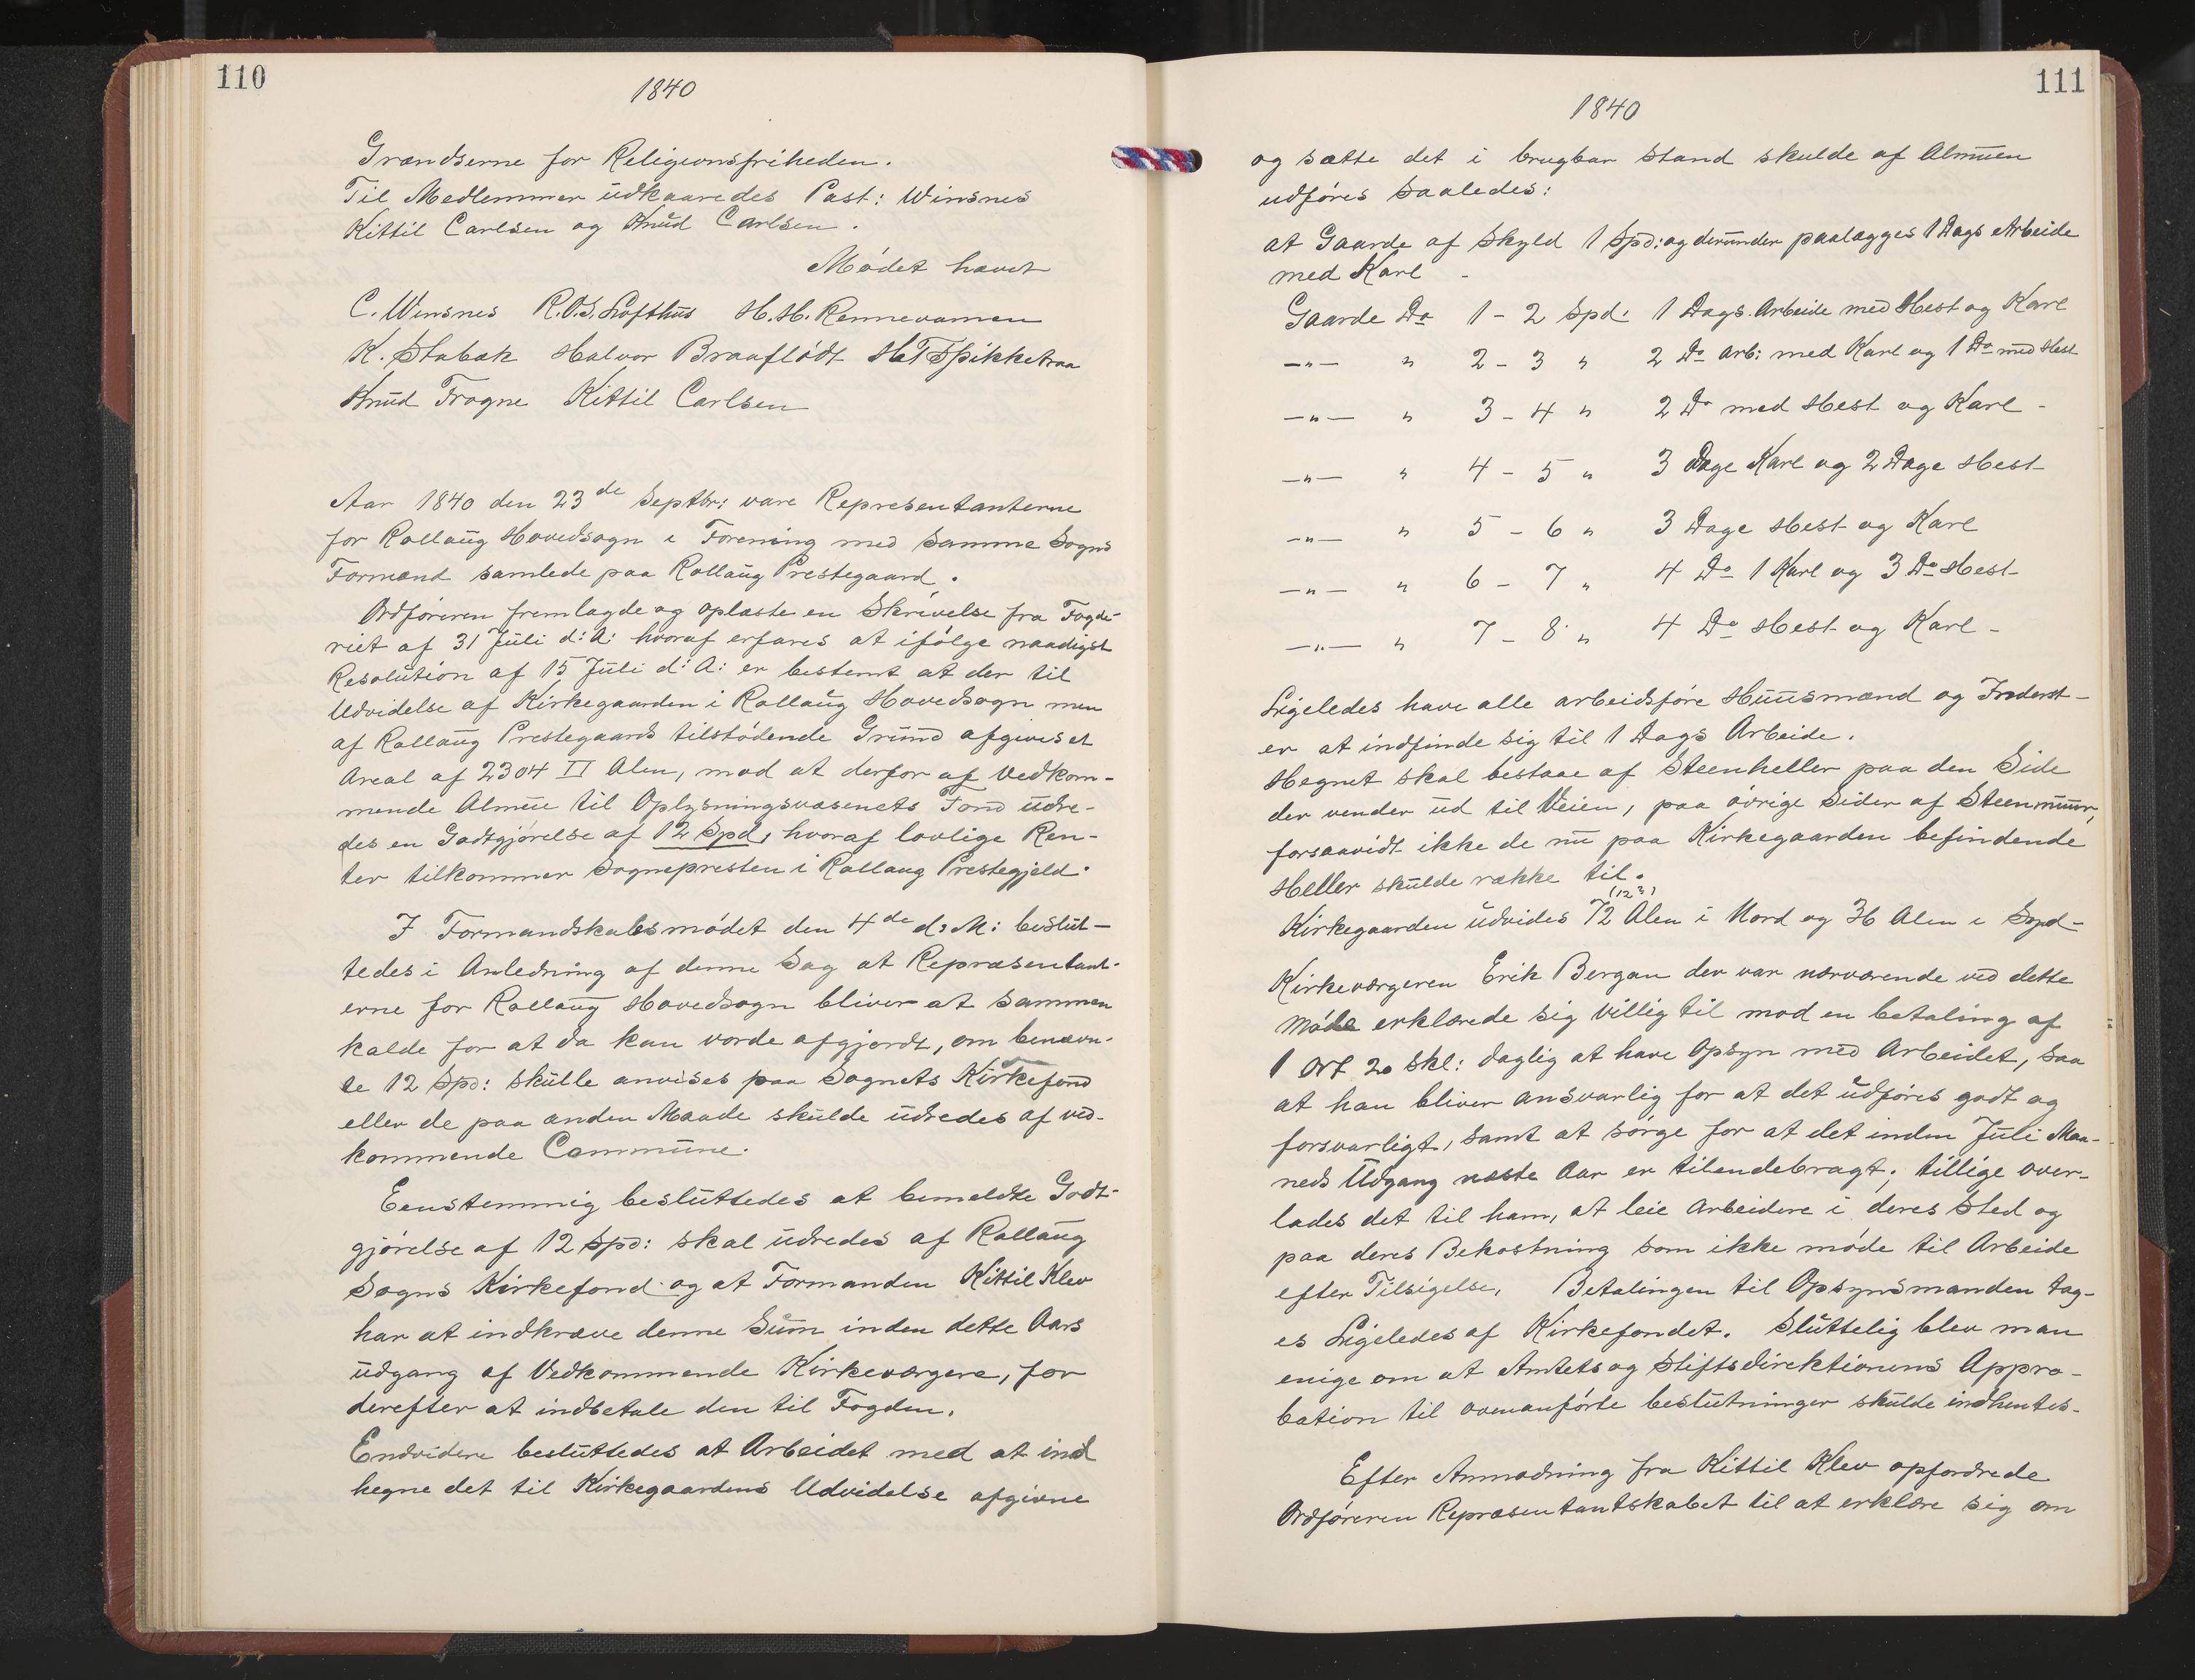 110
1840
Grændserne for Religionsfriheden.
Til Medlemmer udkaaredes Past: Winsnes
Kittil Carlsen og Knud Carlsen.
Mødet hævet
C. Winsnes R.O.S. Lofthus H.H. Rennevamen
K. Stabæk Halvor Braaflødt H.T. Spikketraa
Knud Frogne Kittil Carlsen
Aar 1840 den 23de Septbr: vare Representanterne
for Rollaug Hovedsogn i Forening med samme Sogns
Formænd samlede paa Rollaug Prestegaard.
Ordføreren fremlagde og oplæste en Skrivelse fra Fogde-
riet af 31 Juli d: A: hvoraf erfares at ifølge naadigst
Resolution af 15 Juli d: A: er bestemt at der til
Udvidelse af Kirkegaarden i Rollaug Hovedsogn maa
af Rollaug Prestegaards tilstødende Grund afgives et
Areal af 2304 □ Alen, mod at derfor af Vedkom-
mende Almue til Oplysningsvæsenets Fond udre-
des en Godtgjørelse af 12 Spd, hvoraf lovlige Ren-
ter tilkommer Sognepresten i Rollaug Prestegjeld.
I Formandskabsmødet den 4de d: M: beslut-
tedes i Anledning af denne Sag at Repræsentant-
erne for Rollaug Hovedsogn bliver at sammen
kalde for at da kan vorde afgjordt, om benævn-
te 12 Spd: skulle anvises paa Sognets Kirkefond
eller de paa anden Maade skulde udredes af ved-
kommende Commune.
Eenstemmig besluttedes at bemeldte Godt-
gjørelse af 12 Spd: skal udredes af Rollaug
Sogns Kirkefond og at Formanden Kittil Klev
har at indkræve denne Sum inden dette Aars
udgang af Vedkommende Kirkeværgere, for
derefter at indbetale den til Fogden.
Endvidere besluttedes at Arbeidet med at ind
hegne det til Kirkegaardens Udvidelse afgivne
111
1840
og sætte det i brugbar Stand skulde af Almuen
udføres saaledes:
at Gaarde af Skyld 1 Spd: og derunder paalægges 1 Dags Arbeide
med Karl -
Gaarde Do 1 - 2 Spd: 1 Dags Arbeide med Hest og Karl
—"— " 2 - 3 " 2 Do Arb: med Karl og 1 Do med Hest
—"— " 3 - 4 " 2 Do med Hest og Karl -
—"— " 4 - 5 " 3 Dage Karl og 2 Dage Hest
—"— " 5 - 6 " 3 Dage Hest og Karl
—"— " 6 - 7 " 4 Do 1 Karl og 3 Do Hest
—"— " 7 - 8 " 4 Do Hest og Karl -
Ligeledes have alle arbeidsføre Huusmænd og Inderst-
er at indfinde sig til 1 Dags Arbeide.
Hegnet skal bestaae af Steenheller paa den Side
der vender ud til Veien, paa øvrige Sider af Steenmuur,
forsaavidt ikke de nu paa Kirkegaarden befindende
Heller skulde række til.
(12?)
Kirkegaarden udvides 72 Alen i Nord og 36 Alen i Syd-
Kirkeværgeren Erik Bergan der var nærværende ved dette
Møde erklærede sig villig til mod en betaling af
1 Ort 20 Skl: daglig at have Opsyn med Arbeidet, saa
at han bliver ansvarlig for at det udføres godt og
forsvarligt, samt at sørge for at det inden Juli Maa-
neds Udgang næste Aar er tilendebragt; tillige over-
lades det til ham, at leie Arbeidere i deres Sted og
paa deres Bekostning som ikke møde til Arbeide
efter Tilsigelse. Betalingen til Opsynsmanden tag-
es Ligeledes af Kirkefondet. Sluttelig blev man
enige om at Amtets og Stiftsdirektionens Appro-
bation til ovenanførte beslutninger skulde indhentes.
Efter Anmodning fra Kittil Klev opfordrede
Ordføreren Repræsentantskabet til at erklære sig om